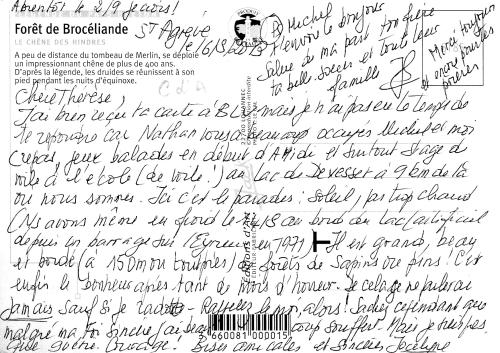 Abientôt le 2/9 je cours!
St Agrève
le 16/8/2023
Forêt de Brocéliande
LE CHÊNE DES HINDRES
A peu de distance du tombeau de Merlin, se déploie
un impressionnant chêne de plus de 400 ans.
D'après la légende, les druides se réunissent à son
pied pendant les nuits d'équinoxe.
Michel
t'envoie le bonjour
Salue de ma part ton frère
ta belle soeur et toute leur
famille
Merci toujours
et encore pour tes
prières
Chère Thérèse,
J'ai bien reçu ta carte à BLV mais je n'ai pas eu le temps de
te répondre car Nathan nous a beaucoup occupés Michel et moi
(repas, jeux balades en début d'A Midi et surtout stage de
voile à l'école (de voile!) au lac de Devesset à 9 km de là
où nous sommes. Ici c'est le paradis: soleil, pas trop chaud
(Ns avons même eu froid le au bord du lac (artificiel
depuis un barrage sur l'Eyrieux en 1971) Il est grand, beau
et bordé (à 1500m tou) de forêts de Sapins ou pins! C'est
enfin le bonheur après tant de mois d'horreur. Je cela ne parlerai
jamais Sauf si je radote - Rappelle le moi, alors! Sachez cependant que
malgré ma foi sincère j'ai beaucoup souffert. Mais je n'suis pas
guérie. Courage! Bises amicales et sincères Jocelyne
Editions d'Art
3 660081 000015